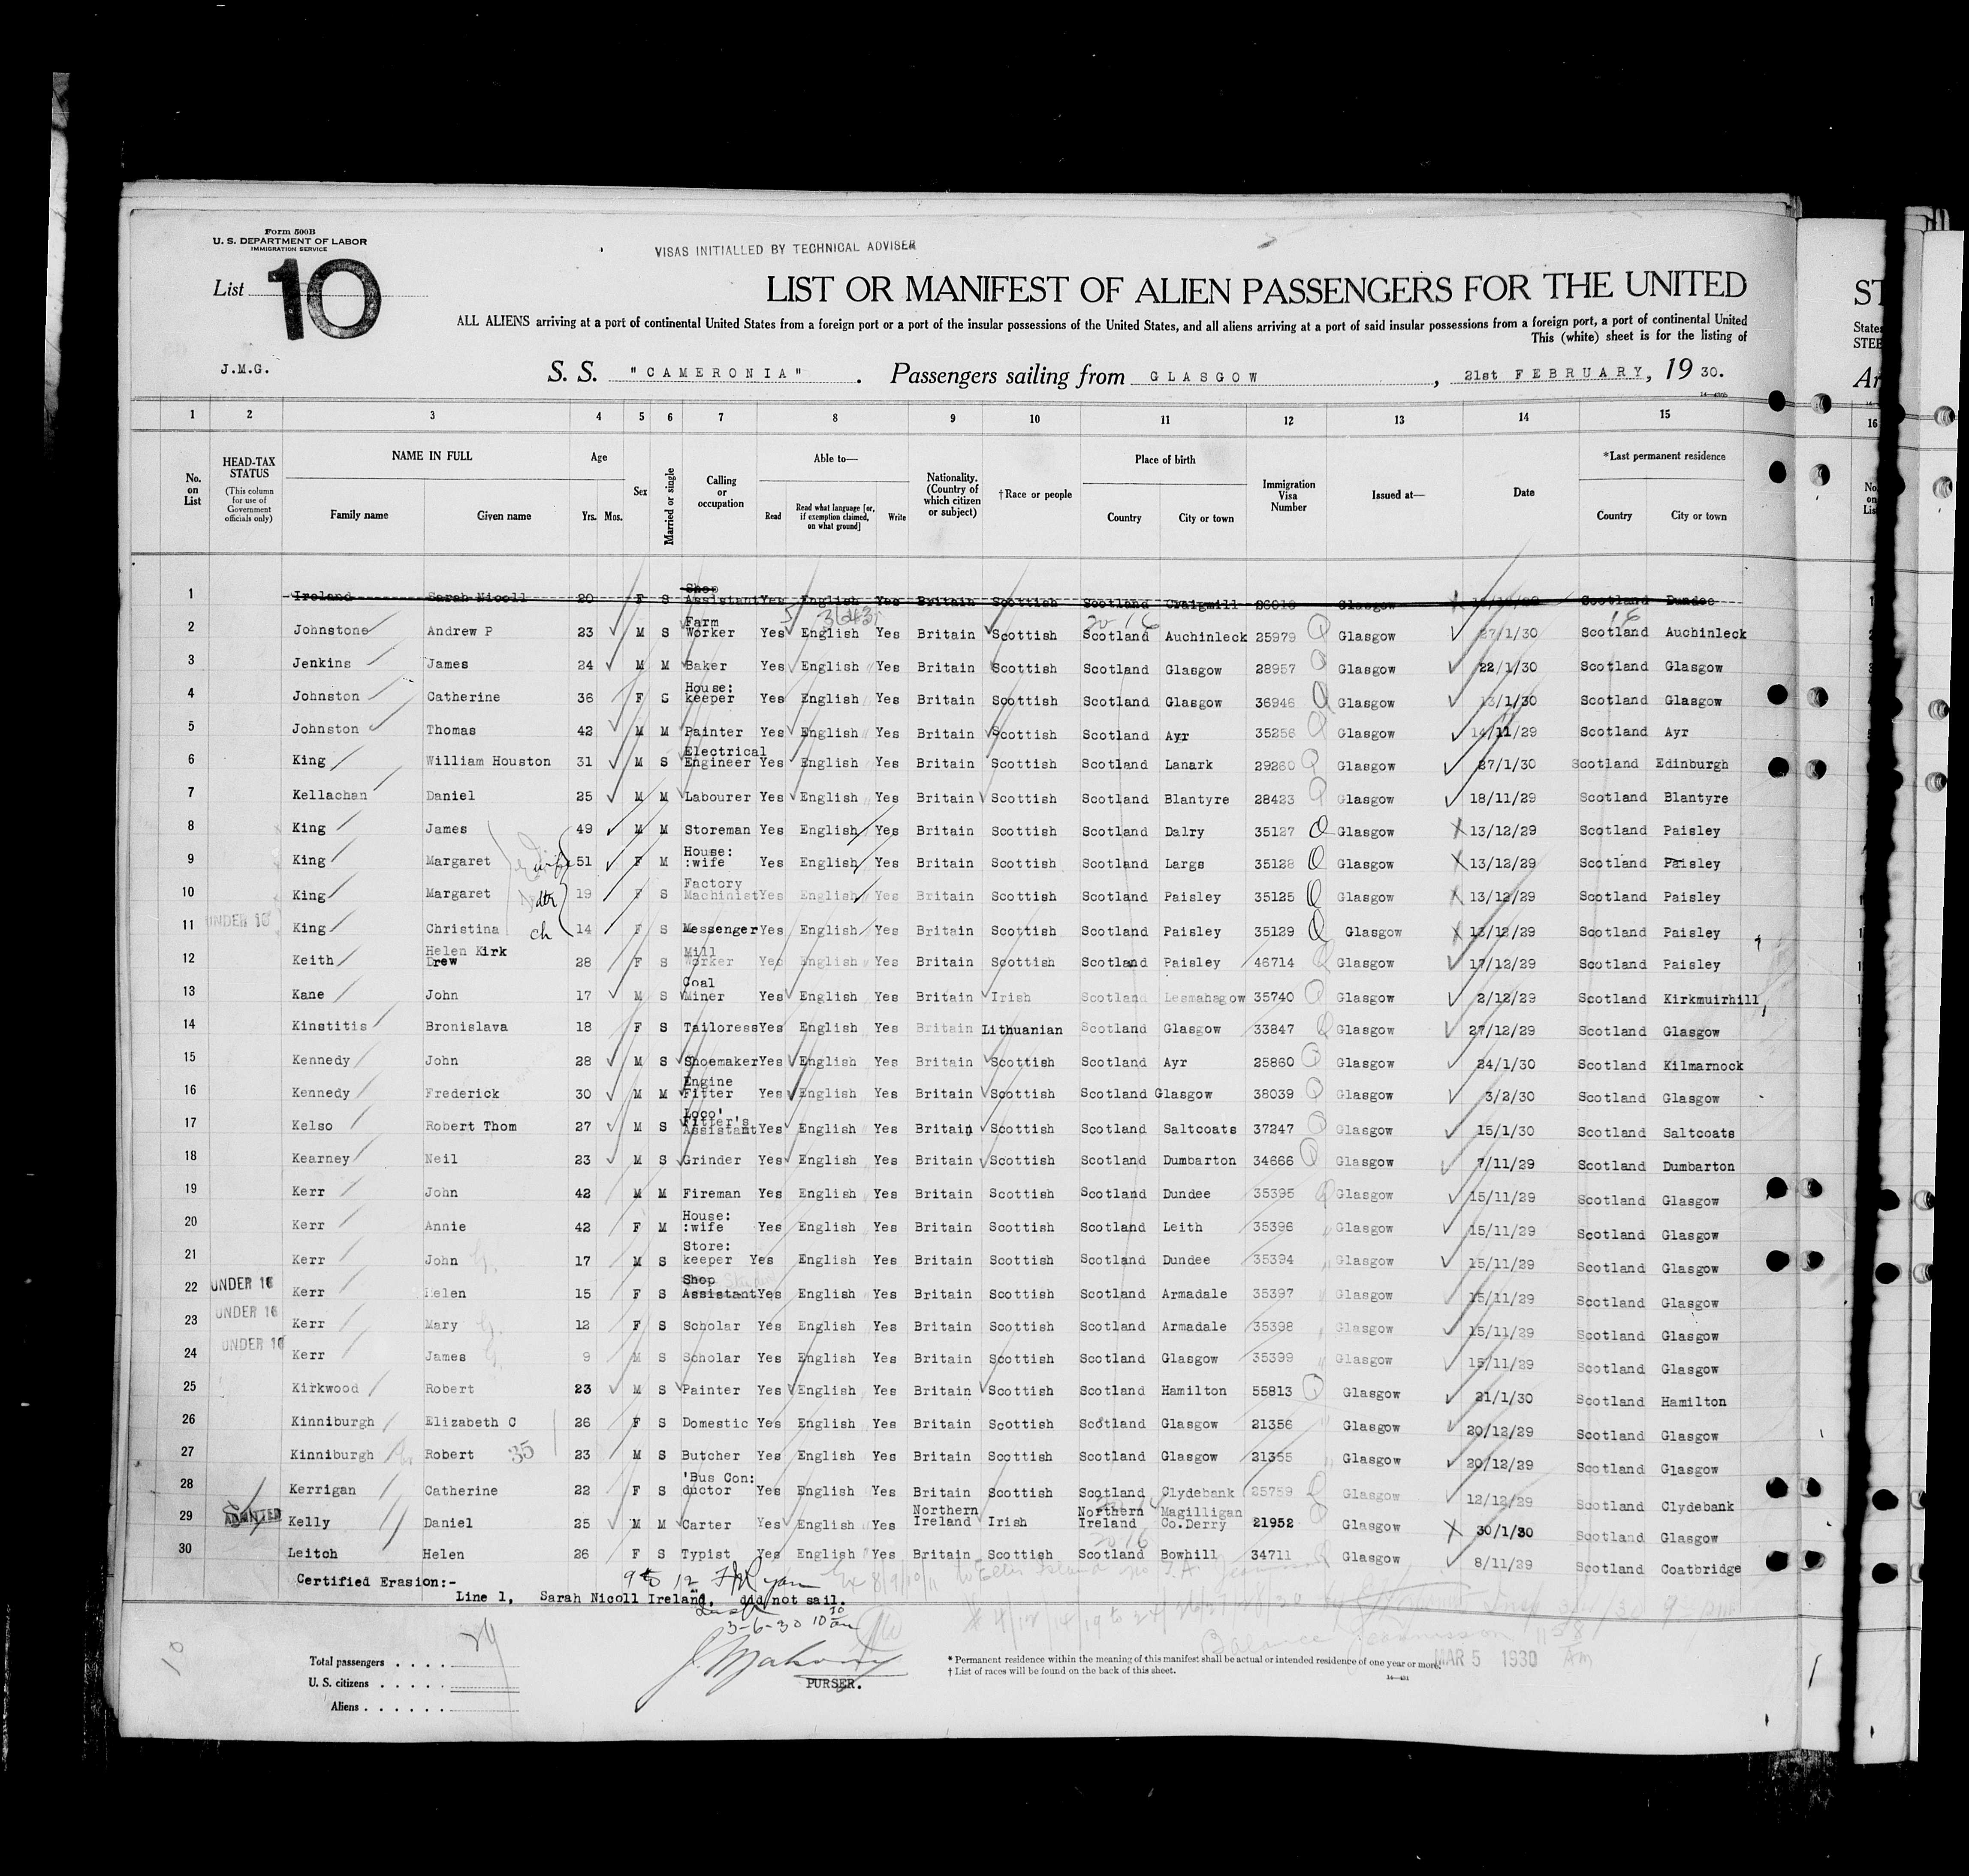 Form 500B
U. S. DEPARTMENT OF LABOR
IMMIGRATION SERVICE
VISAS INITIALLED BY TECHNICAL ADVISER
List 10
LIST OR MANIFEST OF ALIEN PASSENGERS FOR THE UNITED
ST
ALL ALIENS arriving at a port of continental United States from a foreign port or a port of the insular possessions of the United States, and all aliens arriving at a port of said insular possessions from a foreign port, a port of continental United
States
This (white) sheet is for the listing of
STEE
J.M.G.
S. S. "CAMERONIA" . Passengers sailing from GLASGOW , 21st FEBRUARY, 1930.
Ar
1 2 3 4 5 6 7 8 9 10 11 12 13 14 15 16
No. on List
HEAD-TAX STATUS (This column for use of Government officials only)
NAME IN FULL Family name Given name
Age Yrs. Mos.
Sex
Married or single
Calling or occupation
Able to— Read Read what language [or, if exemption claimed, on what ground] Write
Nationality. (Country of which citizen or subject)
†Race or people
Place of birth Country City or town
Immigration Visa Number
Issued at—
Date
*Last permanent residence Country City or town
1 Ireland Sarah Nicoll 20 F S Shop Assistant Yes English Yes Britain Scottish Scotland Craigmill Glasgow Scotland Dundee
2 Johnstone Andrew P 23 M S Farm Worker Yes English Yes Britain Scottish Scotland Auchinleck 25979 Glasgow 27/1/30 Scotland Auchinleck
3 Jenkins James 24 M M Baker Yes English Yes Britain Scottish Scotland Glasgow 28957 Glasgow 22/1/30 Scotland Glasgow
4 Johnston Catherine 36 F S House: keeper Yes English Yes Britain Scottish Scotland Glasgow 36946 Glasgow 13/1/30 Scotland Glasgow
5 Johnston Thomas 42 M M Painter Yes English Yes Britain Scottish Scotland Ayr 35256 Glasgow 14/11/29 Scotland Ayr
6 King William Houston 31 M S Electrical Engineer Yes English Yes Britain Scottish Scotland Lanark 29260 Glasgow 27/1/30 Scotland Edinburgh
7 Kellachan Daniel 25 M M Labourer Yes English Yes Britain Scottish Scotland Blantyre 28423 Glasgow 18/11/29 Scotland Blantyre
8 King James 49 M M Storeman Yes English Yes Britain Scottish Scotland Dalry 35127 Glasgow 13/12/29 Scotland Paisley
9 King Margaret wife 51 F M House: :wife Yes English Yes Britain Scottish Scotland Largs 35128 Glasgow 13/12/29 Scotland Paisley
10 King Margaret dtr 19 F S Factory Machinist Yes English Yes Britain Scottish Scotland Paisley 35125 Glasgow 13/12/29 Scotland Paisley
11 UNDER 16 King Christina ch 14 F S Messenger Yes English Yes Britain Scottish Scotland Paisley 35129 Glasgow 13/12/29 Scotland Paisley
12 Keith Helen Kirk Drew 28 F S Mill Worker Yes English Yes Britain Scottish Scotland Paisley 46714 Glasgow 17/12/29 Scotland Paisley
13 Kane John 17 M S Coal Miner Yes English Yes Britain Irish Scotland Lesmahagow 35740 Glasgow 2/12/29 Scotland Kirkmuirhill
14 Kinstitis Bronislava 18 F S Tailoress Yes English Yes Britain Lithuanian Scotland Glasgow 33847 Glasgow 27/12/29 Scotland Glasgow
15 Kennedy John 28 M S Shoemaker Yes English Yes Britain Scottish Scotland Ayr 25860 Glasgow 24/1/30 Scotland Kilmarnock
16 Kennedy Frederick 30 M M Engine Fitter Yes English Yes Britain Scottish Scotland Glasgow 38039 Glasgow 3/2/30 Scotland Glasgow
17 Kelso Robert Thom 27 M S Loco' Fitter's Assistant Yes English Yes Britain Scottish Scotland Saltcoats 37247 Glasgow 15/1/30 Scotland Saltcoats
18 Kearney Neil 23 M S Grinder Yes English Yes Britain Scottish Scotland Dumbarton 34666 Glasgow 7/11/29 Scotland Dumbarton
19 Kerr John 42 M M Fireman Yes English Yes Britain Scottish Scotland Dundee 35395 Glasgow 15/11/29 Scotland Glasgow
20 Kerr Annie 42 F M House: :wife Yes English Yes Britain Scottish Scotland Leith 35396 Glasgow 15/11/29 Scotland Glasgow
21 Kerr John G. 17 M S Store: keeper Yes English Yes Britain Scottish Scotland Dundee 35394 Glasgow 15/11/29 Scotland Glasgow
22 UNDER 16 Kerr Helen 15 F S Shop Assistant Yes English Yes Britain Scottish Scotland Armadale 35397 Glasgow 15/11/29 Scotland Glasgow
23 UNDER 16 Kerr Mary G. 12 F S Scholar Yes English Yes Britain Scottish Scotland Armadale 35398 Glasgow 15/11/29 Scotland Glasgow
24 UNDER 16 Kerr James G. 9 M S Scholar Yes English Yes Britain Scottish Scotland Glasgow 35399 Glasgow 15/11/29 Scotland Glasgow
25 Kirkwood Robert 23 M S Painter Yes English Yes Britain Scottish Scotland Hamilton 55813 Glasgow 21/1/30 Scotland Hamilton
26 Kinniburgh Elizabeth C 26 F S Domestic Yes English Yes Britain Scottish Scotland Glasgow 21356 Glasgow 20/12/29 Scotland Glasgow
27 Kinniburgh Robert 35 23 M S Butcher Yes English Yes Britain Scottish Scotland Glasgow 21355 Glasgow 20/12/29 Scotland Glasgow
28 Kerrigan Catherine 22 F S 'Bus Con: ductor Yes English Yes Britain Scottish Scotland Clydebank 25759 Glasgow 12/12/29 Scotland Clydebank
29 ADMITTED Kelly Daniel 25 M M Carter Yes English Yes Northern Ireland Irish Northern Ireland Magilligan Co.Derry 21952 Glasgow 30/1/30 Scotland Glasgow
30 Leitch Helen 26 F S Typist Yes English Yes Britain Scottish Scotland Bowhill 34711 Glasgow 8/11/29 Scotland Coatbridge
Certified Erasion:-
Line 1, Sarah Nicoll Ireland, did not sail.
3-6-30
PURSER.
Total passengers
U. S. citizens
Aliens
* Permanent residence within the meaning of this manifest shall be actual or intended residence of one year or more.
† List of races will be found on the back of this sheet.
MAR 5 1930 AM